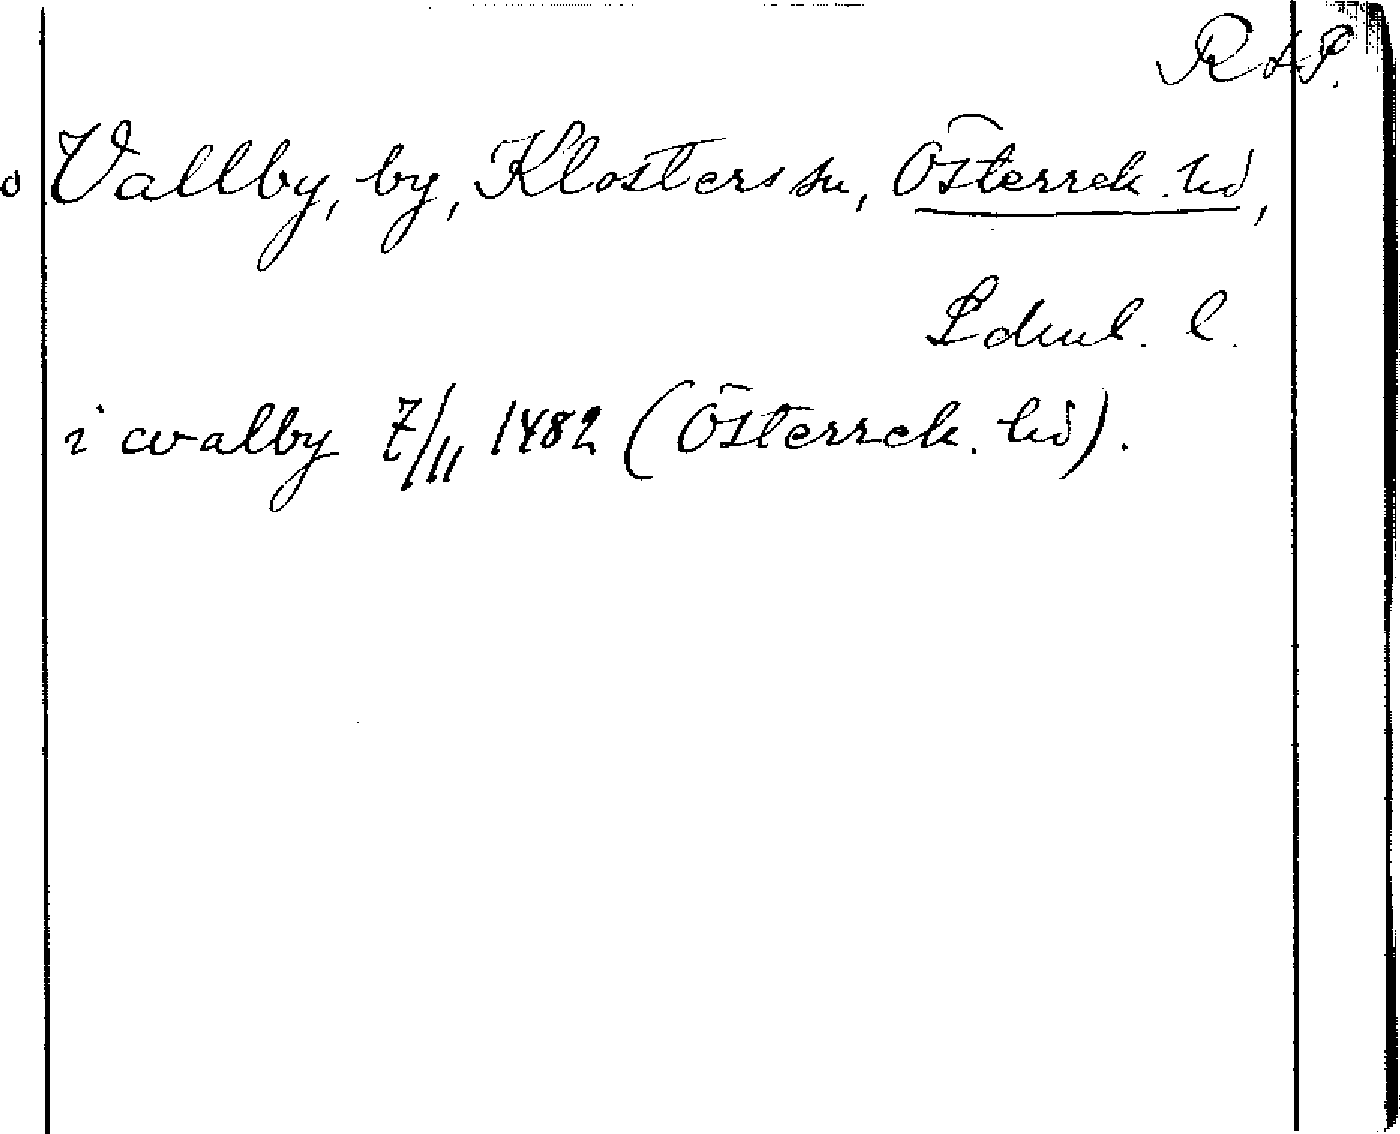 RAP.
o Vallby, by, Klosters sn, Österrek. hd,
Sdml. l.
i walby 7/11 1482 (Österrek. hd).